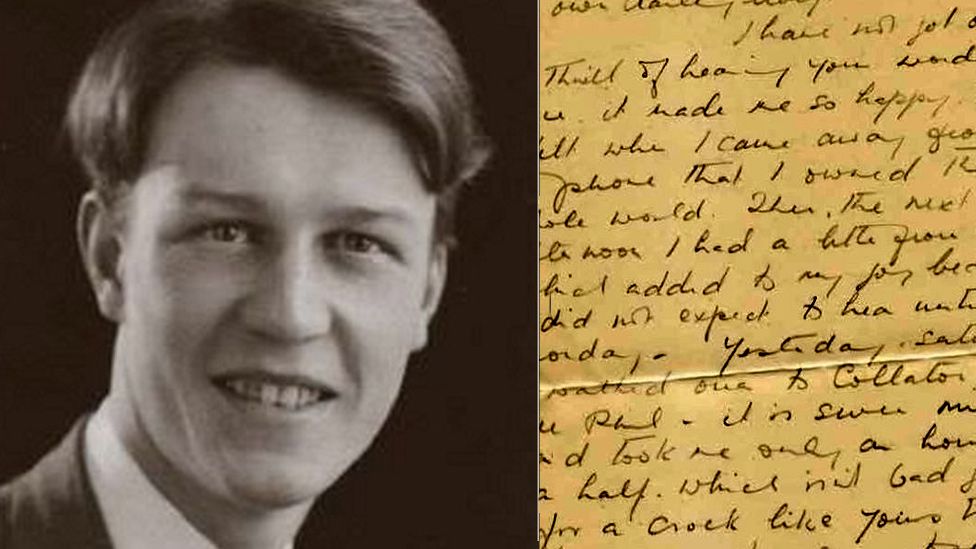 own darling boy
I have not got o
Thrill of hearing your word
it made me so happy.
when I came away from
phone that I owned th
ole world. Then, the next
noon I had a letter from
hich added to my joy bec
did not expect to hear unti
onday. Yesterday,
walked over to Collaton
Paul - it is seven m
nd took me only an hou
a half. Which isn't bad g
for a crock like yours t